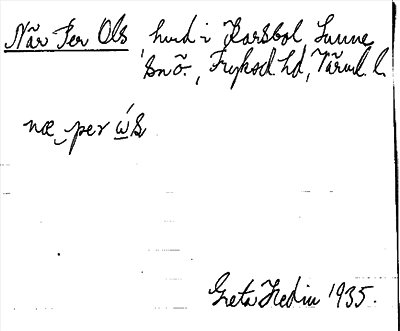 När Per Ols hmd i Karsbol Sunne
sn ö., Fryksd. hd, Värml. l.
næ per ώs
Greta Hedin 1935.